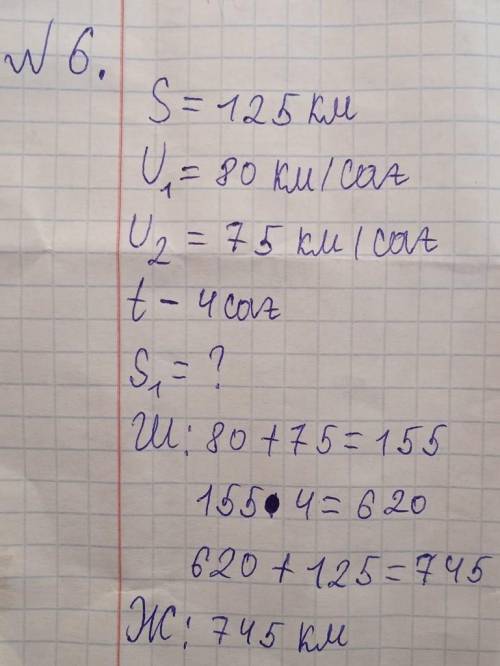 № 6.
S = 125 км
U₁ = 80 км/саг
U₂ = 75 км/саг
t - 4 саг
S₁ = ?
Ш: 80 + 75 = 155
155 • 4 = 620
620 + 125 = 745
Ж: 745 км